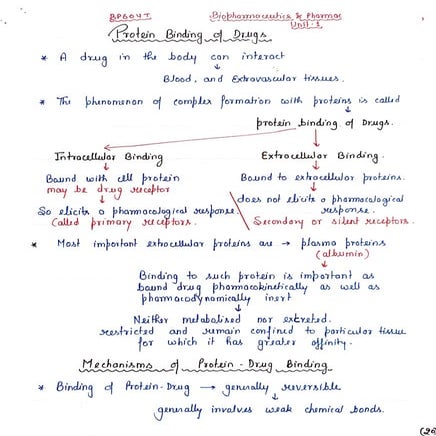 BP604T Biopharmaceutics & Pharmac
Unit-1
Protein Binding of Drugs
* A drug in the body can interact
Blood, and Extravascular tissues.
* The phenomenon of complex formation with proteins is called
protein binding of Drugs.
Intracellular Binding Extracellular Binding.
Bound with cell protein Bound to extracellular proteins.
may be drug receptor
does not elicit a pharmacological
response.
So elicits a pharmacological response.
(Called primary receptors. Secondary or silent receptors.
* Most important extracellular proteins are → plasma proteins
(albumin)
Binding to such protein is important as
bound drug pharmacokinetically as well as
pharmacodynamically inert
Neither metabolised nor excreted.
restricted and remain confined to particular tissue
for which it has greater affinity.
Mechanisms of Protein-Drug Binding
* Binding of Protein-Drug → generally reversible
generally involves weak chemical bonds.